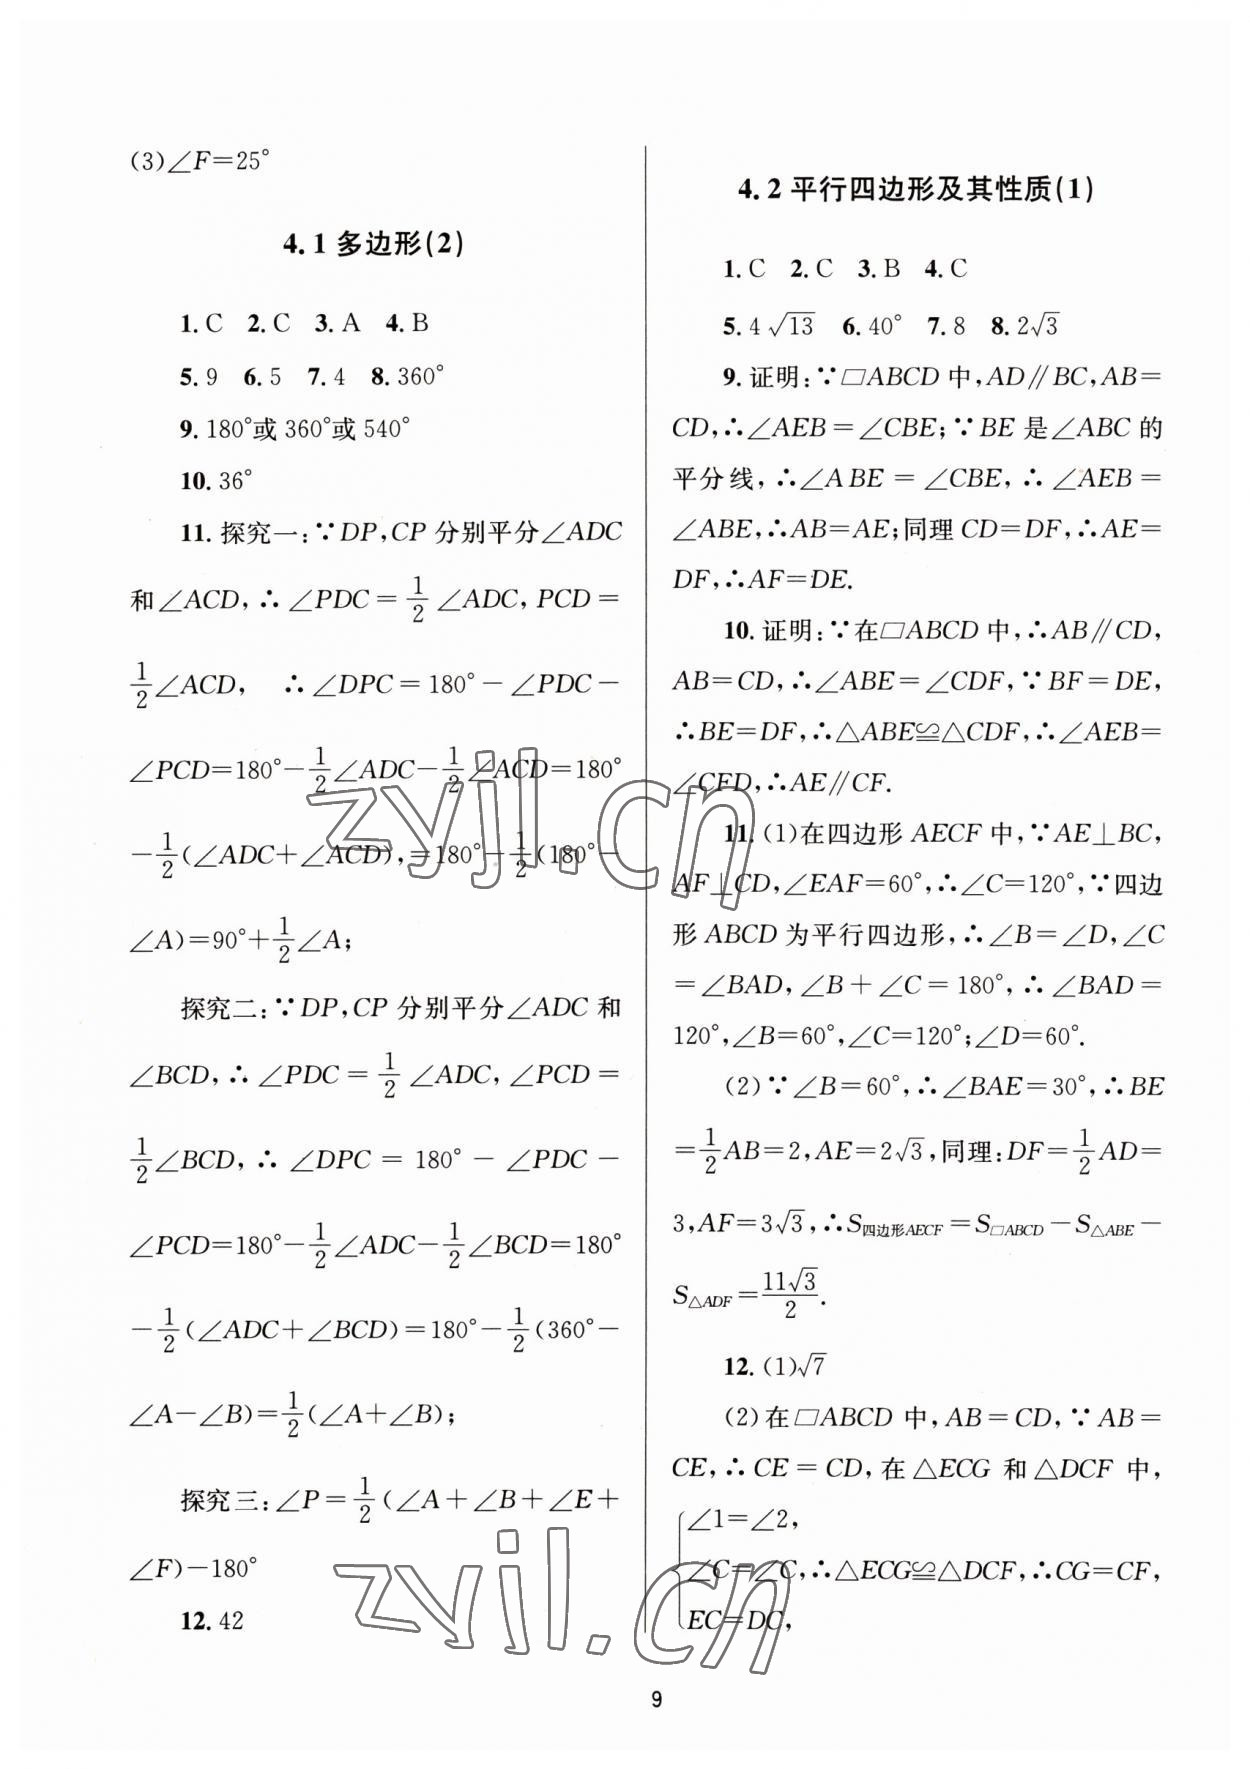 (3)∠F=25°
4.1 多边形(2)
1. C 2. C 3. A 4. B
5. 9 6. 5 7. 4 8. 360°
9. 180°或 360°或 540°
10. 36°
11. 探究一:∵DP,CP 分别平分∠ADC
和∠ACD,∴∠PDC=1/2∠ADC,PCD=
1/2∠ACD, ∴∠DPC=180°-∠PDC-
∠PCD=180°-1/2∠ADC-1/2∠ACD=180°
-1/2(∠ADC+∠ACD),=180°-1/2(180°-
∠A)=90°+1/2∠A;
探究二:∵DP,CP 分别平分∠ADC 和
∠BCD,∴∠PDC=1/2∠ADC,∠PCD=
1/2∠BCD,∴∠DPC=180°-∠PDC-
∠PCD=180°-1/2∠ADC-1/2∠BCD=180°
-1/2(∠ADC+∠BCD)=180°-1/2(360°-
∠A-∠B)=1/2(∠A+∠B);
探究三:∠P=1/2(∠A+∠B+∠E+
∠F)-180°
12. 42
4.2 平行四边形及其性质(1)
1. C 2. C 3. B 4. C
5. 4√13 6. 40° 7. 8 8. 2√3
9. 证明:∵▱ABCD 中,AD∥BC,AB=
CD,∴∠AEB=∠CBE;∵BE 是∠ABC 的
平分线,∴∠ABE=∠CBE,∴∠AEB=
∠ABE,∴AB=AE;同理 CD=DF,∴AE=
DF,∴AF=DE.
10. 证明:∵在▱ABCD 中,∴AB∥CD,
AB=CD,∴∠ABE=∠CDF,∵BF=DE,
∴BE=DF,∴△ABE≌△CDF,∴∠AEB=
∠CFD,∴AE∥CF.
11. (1)在四边形 AECF 中,∵AE⊥BC,
AF⊥CD,∠EAF=60°,∴∠C=120°,∵四边
形 ABCD 为平行四边形,∴∠B=∠D,∠C
=∠BAD,∠B+∠C=180°,∴∠BAD=
120°,∠B=60°,∠C=120°;∠D=60°.
(2)∵∠B=60°,∴∠BAE=30°,∴BE
=1/2AB=2,AE=2√3,同理:DF=1/2AD=
3,AF=3√3,∴S四边形AECF=S▱ABCD-S△ABE-
S△ADF=11√3/2.
12. (1)√7
(2)在▱ABCD 中,AB=CD,∵AB=
CE,∴CE=CD,在△ECG 和△DCF 中,
∠1=∠2,
∠C=∠C,∴△ECG≌△DCF,∴CG=CF,
EC=DC,
9
zyjl.cn
zyjl.cn